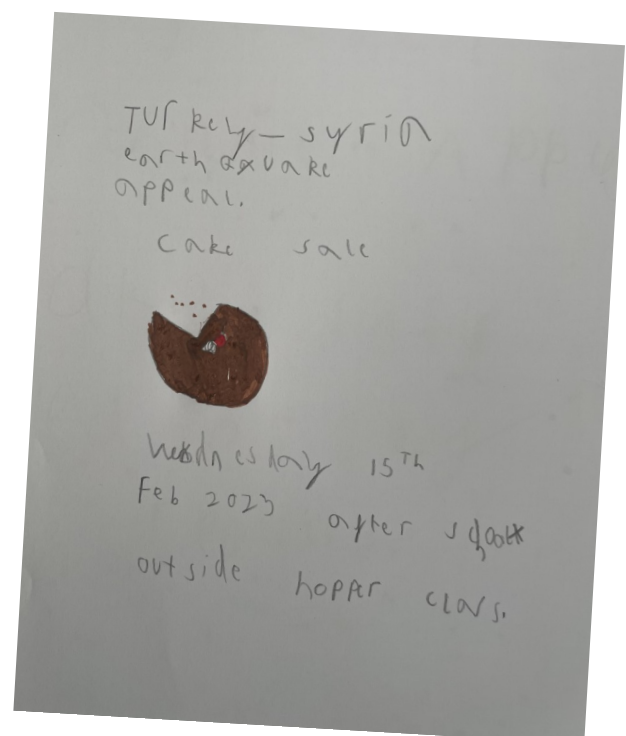 TUrkely-syria
earthqquake
appeal.
cake sale
Wednesday 15Th
Feb 2023 after school
outside hopper class.